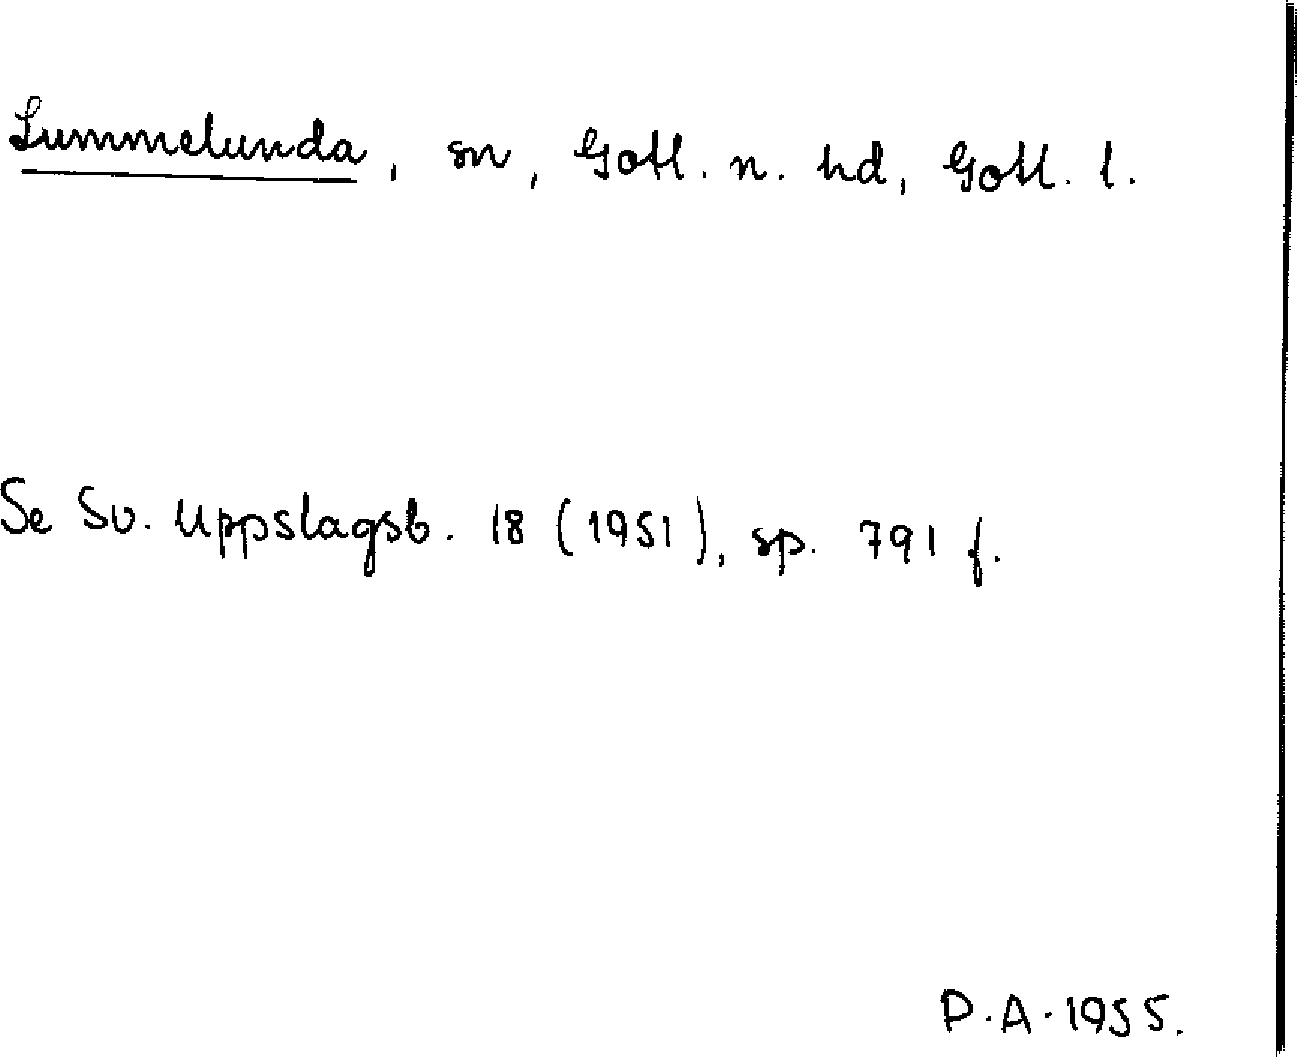 Lummelunda, sn, Gotl. n. hd, Gotl. l.
Se Sv. Uppslagsb. 18 (1951), sp. 791 f.
P.A. 1955.